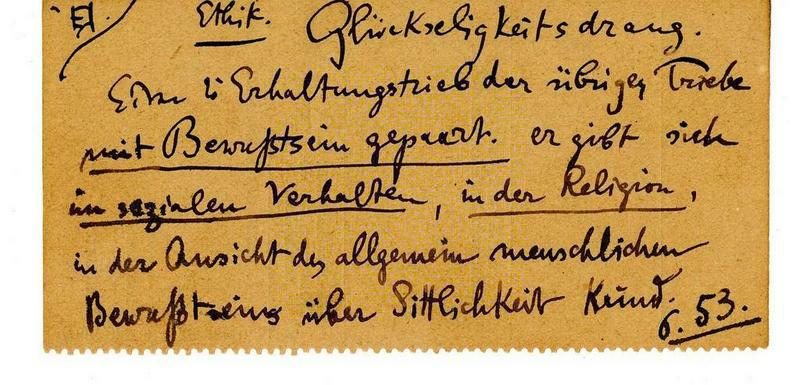 Ethik. Glückseligkeitsdrang.
Erhaltungstrieb der übrigen Triebe
mit Bewußtsein gepaart. er gibt sich
im sozialen Verhalten, in der Religion,
in der Ansicht des allgemein menschlichen
Bewußtseins über Sittlichkeit Kund.
6. 53.